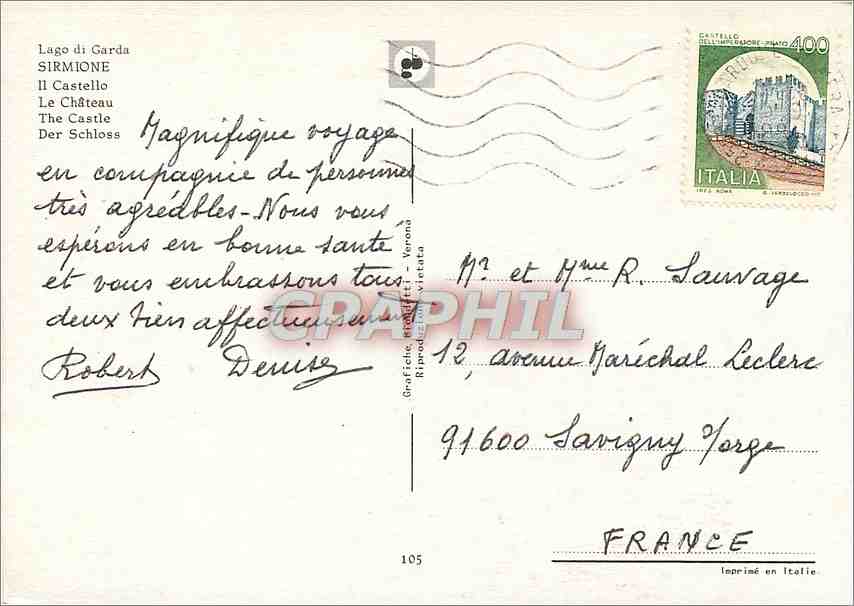 Lago di Garda
SIRMIONE
Il Castello
Le Château
The Castle
Der Schloss
Magnifique voyage
en compagnie de personnes
très agréables - Nous vous
espérons en bonne santé
et vous embrassons tous
deux bien affectueusement
Robert Denise
Grafiche Biondetti - Verona
Riproduzione vietata
105
CASTELLO
DELL'IMPERATORE - PRATO 400
ITALIA
I.P.Z.S. ROMA
Mr et Mme R. Sauvage
12, avenue Maréchal Leclerc
91600 Savigny s/orge
FRANCE
Imprimé en Italie
CPAPHIL